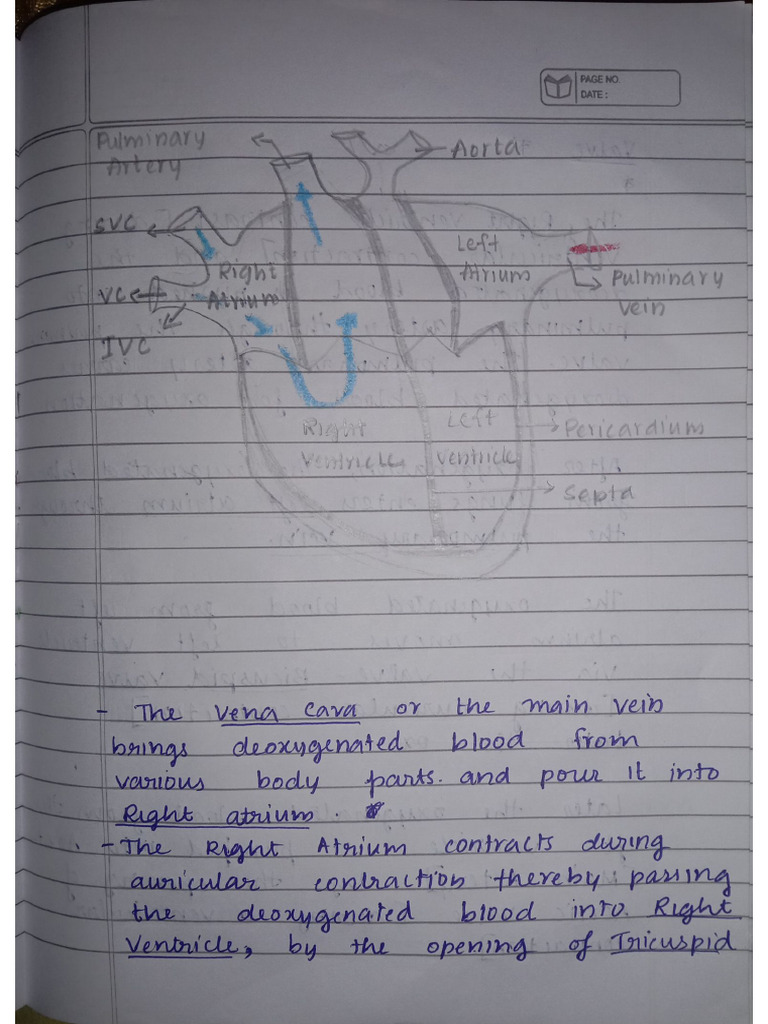 PAGE NO.
DATE :
Pulminary
Artery
Aorta
SVC
Left
Atrium
Right
Atrium
Pulminary
vein
VC
IVC
Right
ventricle
Left
ventricle
Pericardium
Septa
- The Vena Cava or the main vein
brings deoxygenated blood from
various body parts. and pour it into
Right atrium.
- The Right Atrium contracts during
auricular contraction thereby passing
the deoxygenated blood into Right
Ventricle, by the opening of Tricuspid